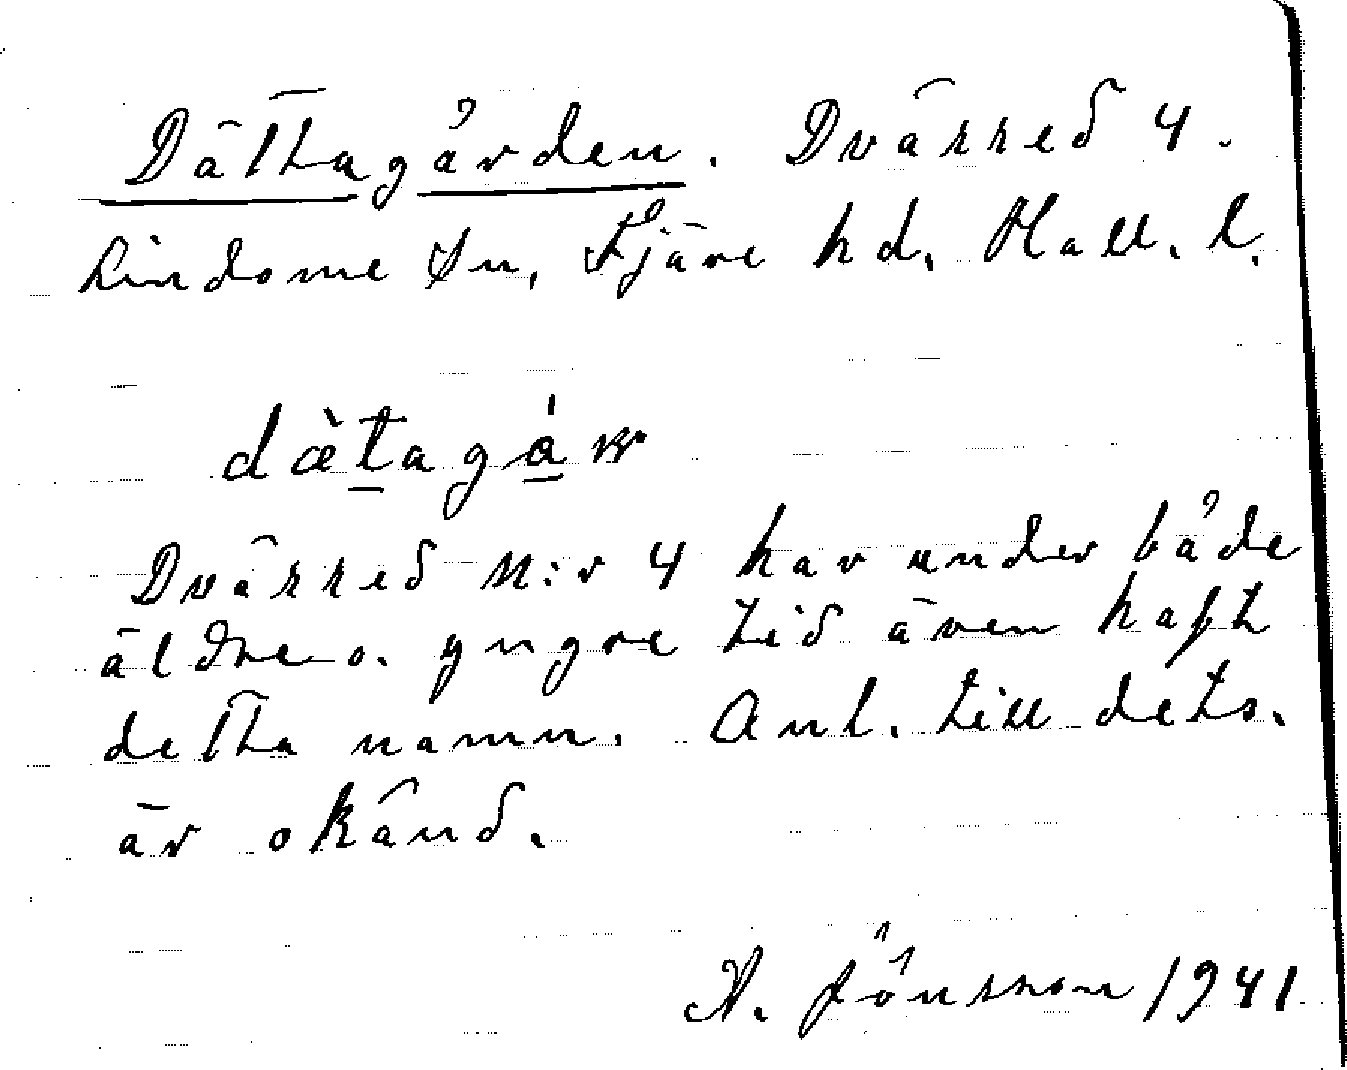 Dättagården. Dvärred 4.
Lindome Sn, Fjäre hd. Hall. l.
dæ̀tagáɹ
Dvärred N:r 4 har under både
äldre o. yngre tid även haft
detta namn. Anl. till dets.
är okänd.
A. Jönsson 1941